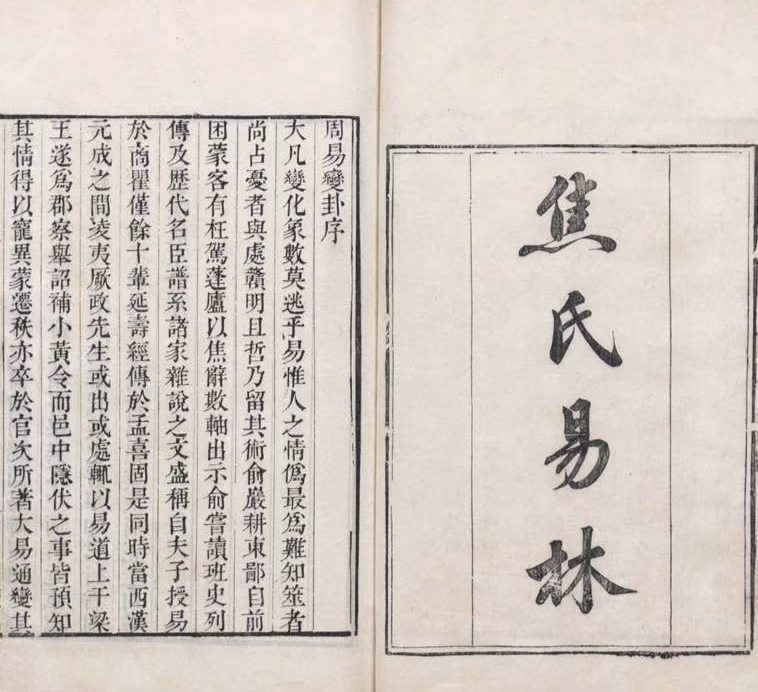 焦氏易林
周易變卦序
大凡變化象數莫逃乎易惟人之情僞最爲難知筮者
尚占憂者與處贛明且哲乃留其術俞嚴耕東鄙自前
困蒙客有枉駕蓬廬以焦辭數軸出示俞嘗讀班史列
傳及歷代名臣譜系諸家雜說之文盛稱自夫子授易
於商瞿僅餘十輩延壽經傳於孟喜固是同時當西漢
元成之間凌夷厥政先生或出或處輒以易道上干梁
王遂爲郡察舉詔補小黃令而邑中隱伏之事皆預知
其情得以寵異蒙遷秩亦卒於官次所著大易通變其